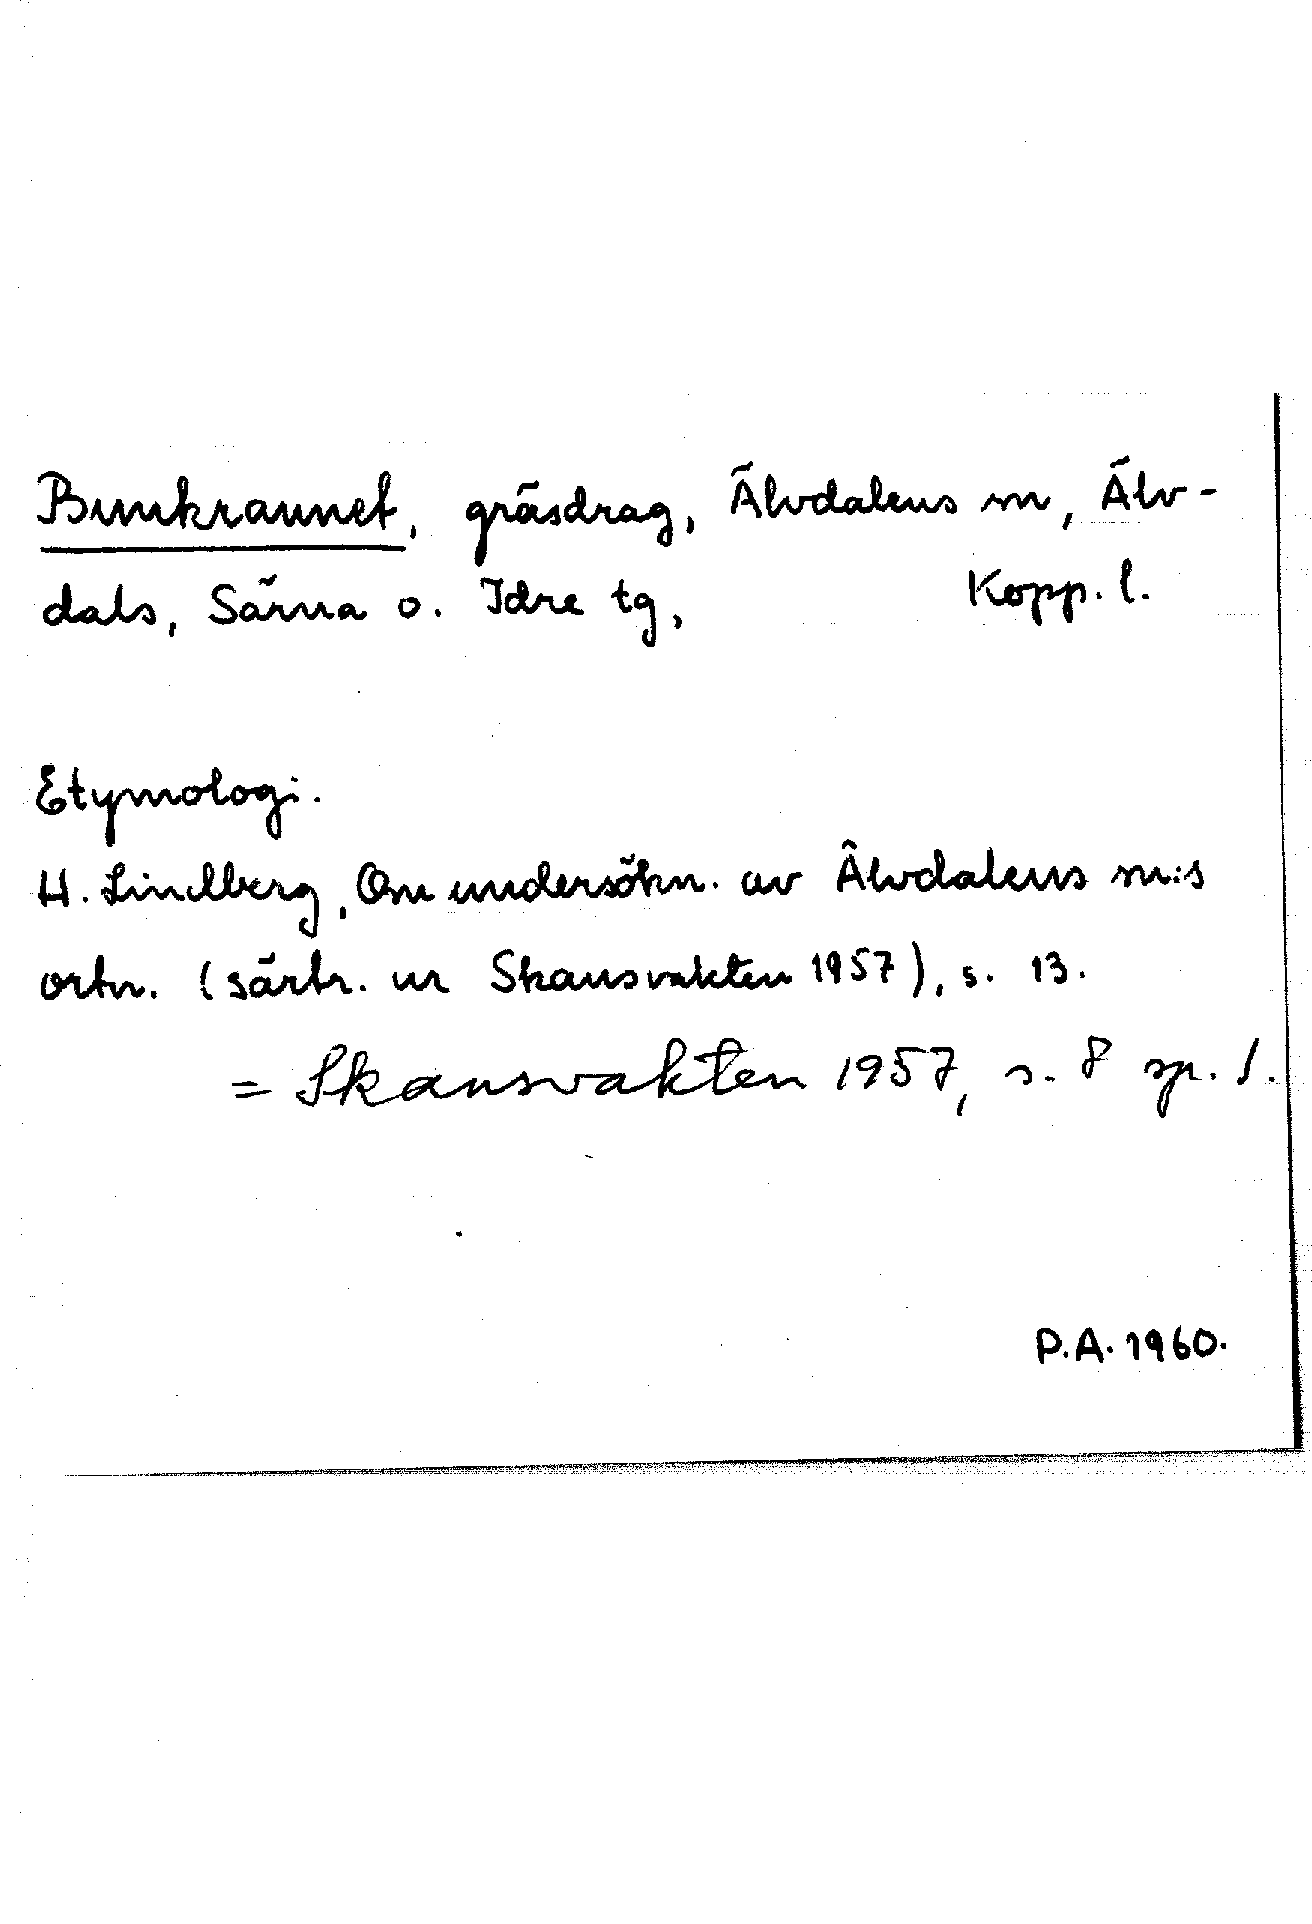 Bunkraunet, gräsdrag, Älvdalens sn, Älv-
dals, Särna o. Idre tg, Kopp. l.
Etymologi.
H. Lindberg, Om undersökn. av Älvdalens sn:s
ortn. (särtr. ur Skansvakten 1957), s. 13.
= Skansvakten 1957, s. 8 sp. 1.
P.A. 1960.